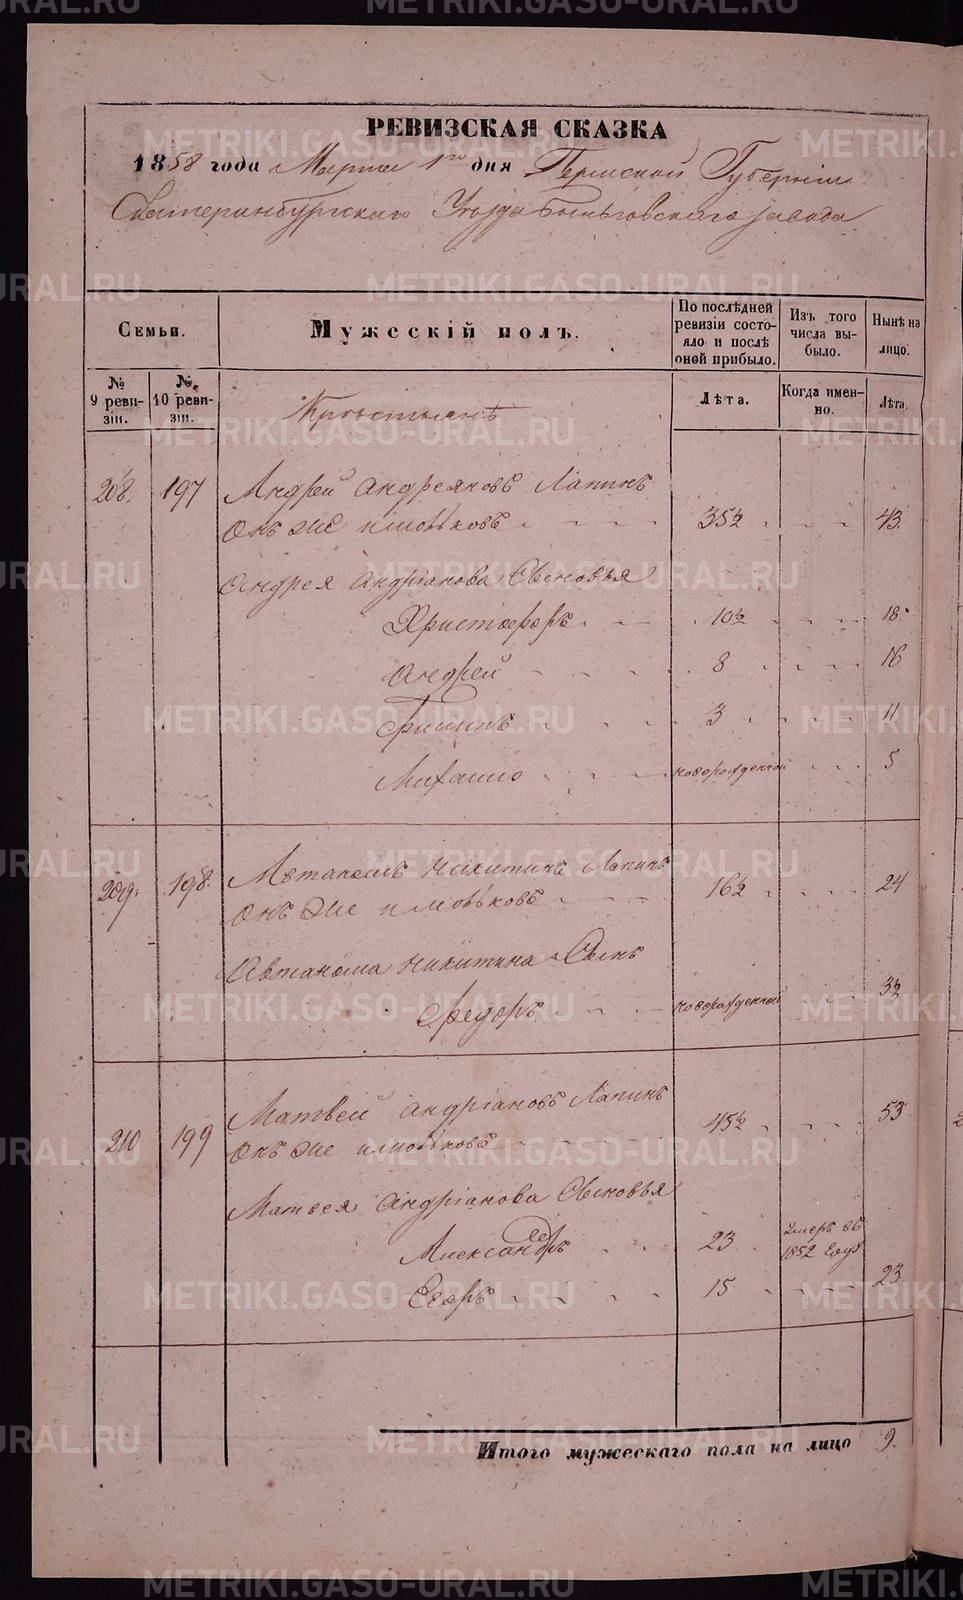 РЕВИЗСКАЯ СКАЗКА
1858 года Марта 1го дня Пермской Губерніи
Екатеринбургскаго Уезда Быньговскаго завода
Семьи.
Мужескій полъ.
По послѣдней ревизіи состояло и послѣ оной прибыло.
Изъ того числа выбыло.
Нынѣ на лицо.
№ 9 ревизіи.
№ 10 ревизіи.
Лѣта.
Когда именно.
Лѣта.
Крестьянъ
208. 197 Андрей Андреяновъ Лапинъ
Онъ же 35½ 43
Андрея Андріанова Сыновья
Христофоръ 10½ 18
Андрей 8 16
3 11
Михаило новорожденной 5
209. 198. Автаномъ Никитинъ Лапинъ 16½ 24
Онъ же
Автанома Никитина Сынъ
Федоръ новорожденной
210 199 Матвей Андріановъ Лапинъ 45½ 53
Онъ же
Матвея Андріанова Сыновья
Александръ 23 умеръ въ 1852 году
Егоръ 15 23
Итого мужескаго пола на лицо 9.
METRIKI.GASO-URAL.RU